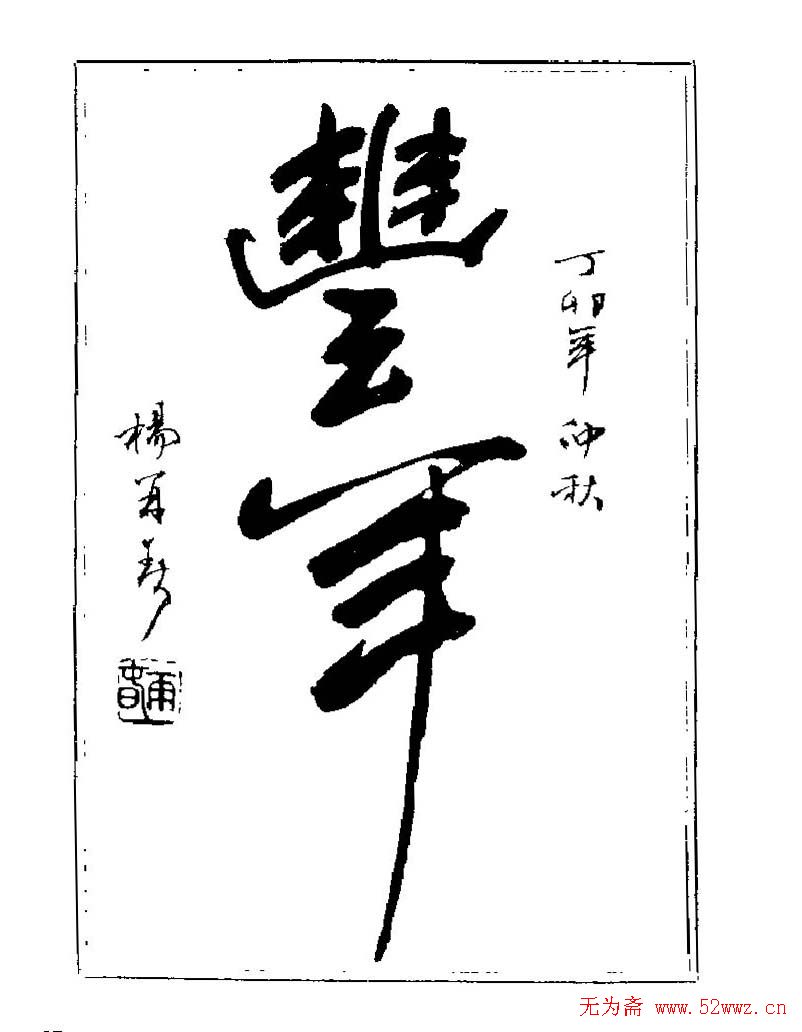 丁卯年 仲秋
豐年
楊再春
再春
无为斋 www.52wwz.cn